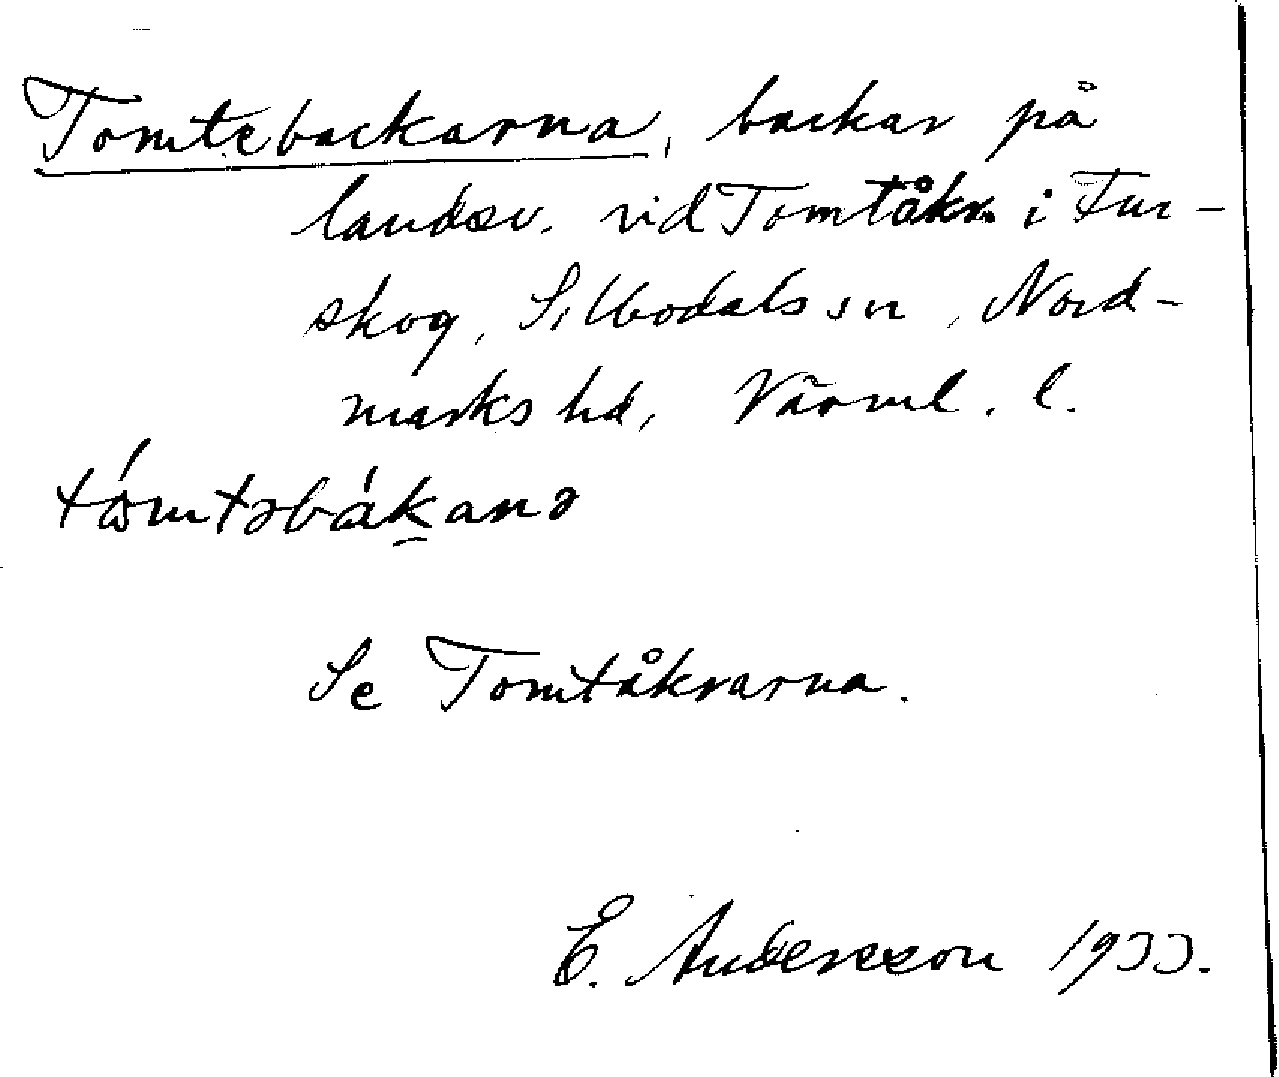 Tomtebackarna, backar på
landsv. vid Tomtåkr. i Fur-
skog, Silbodals sn, Nord-
marks hd, Värml. l.
tómtəbákanə
Se Tomtåkrarna.
E. Andersson 1933.